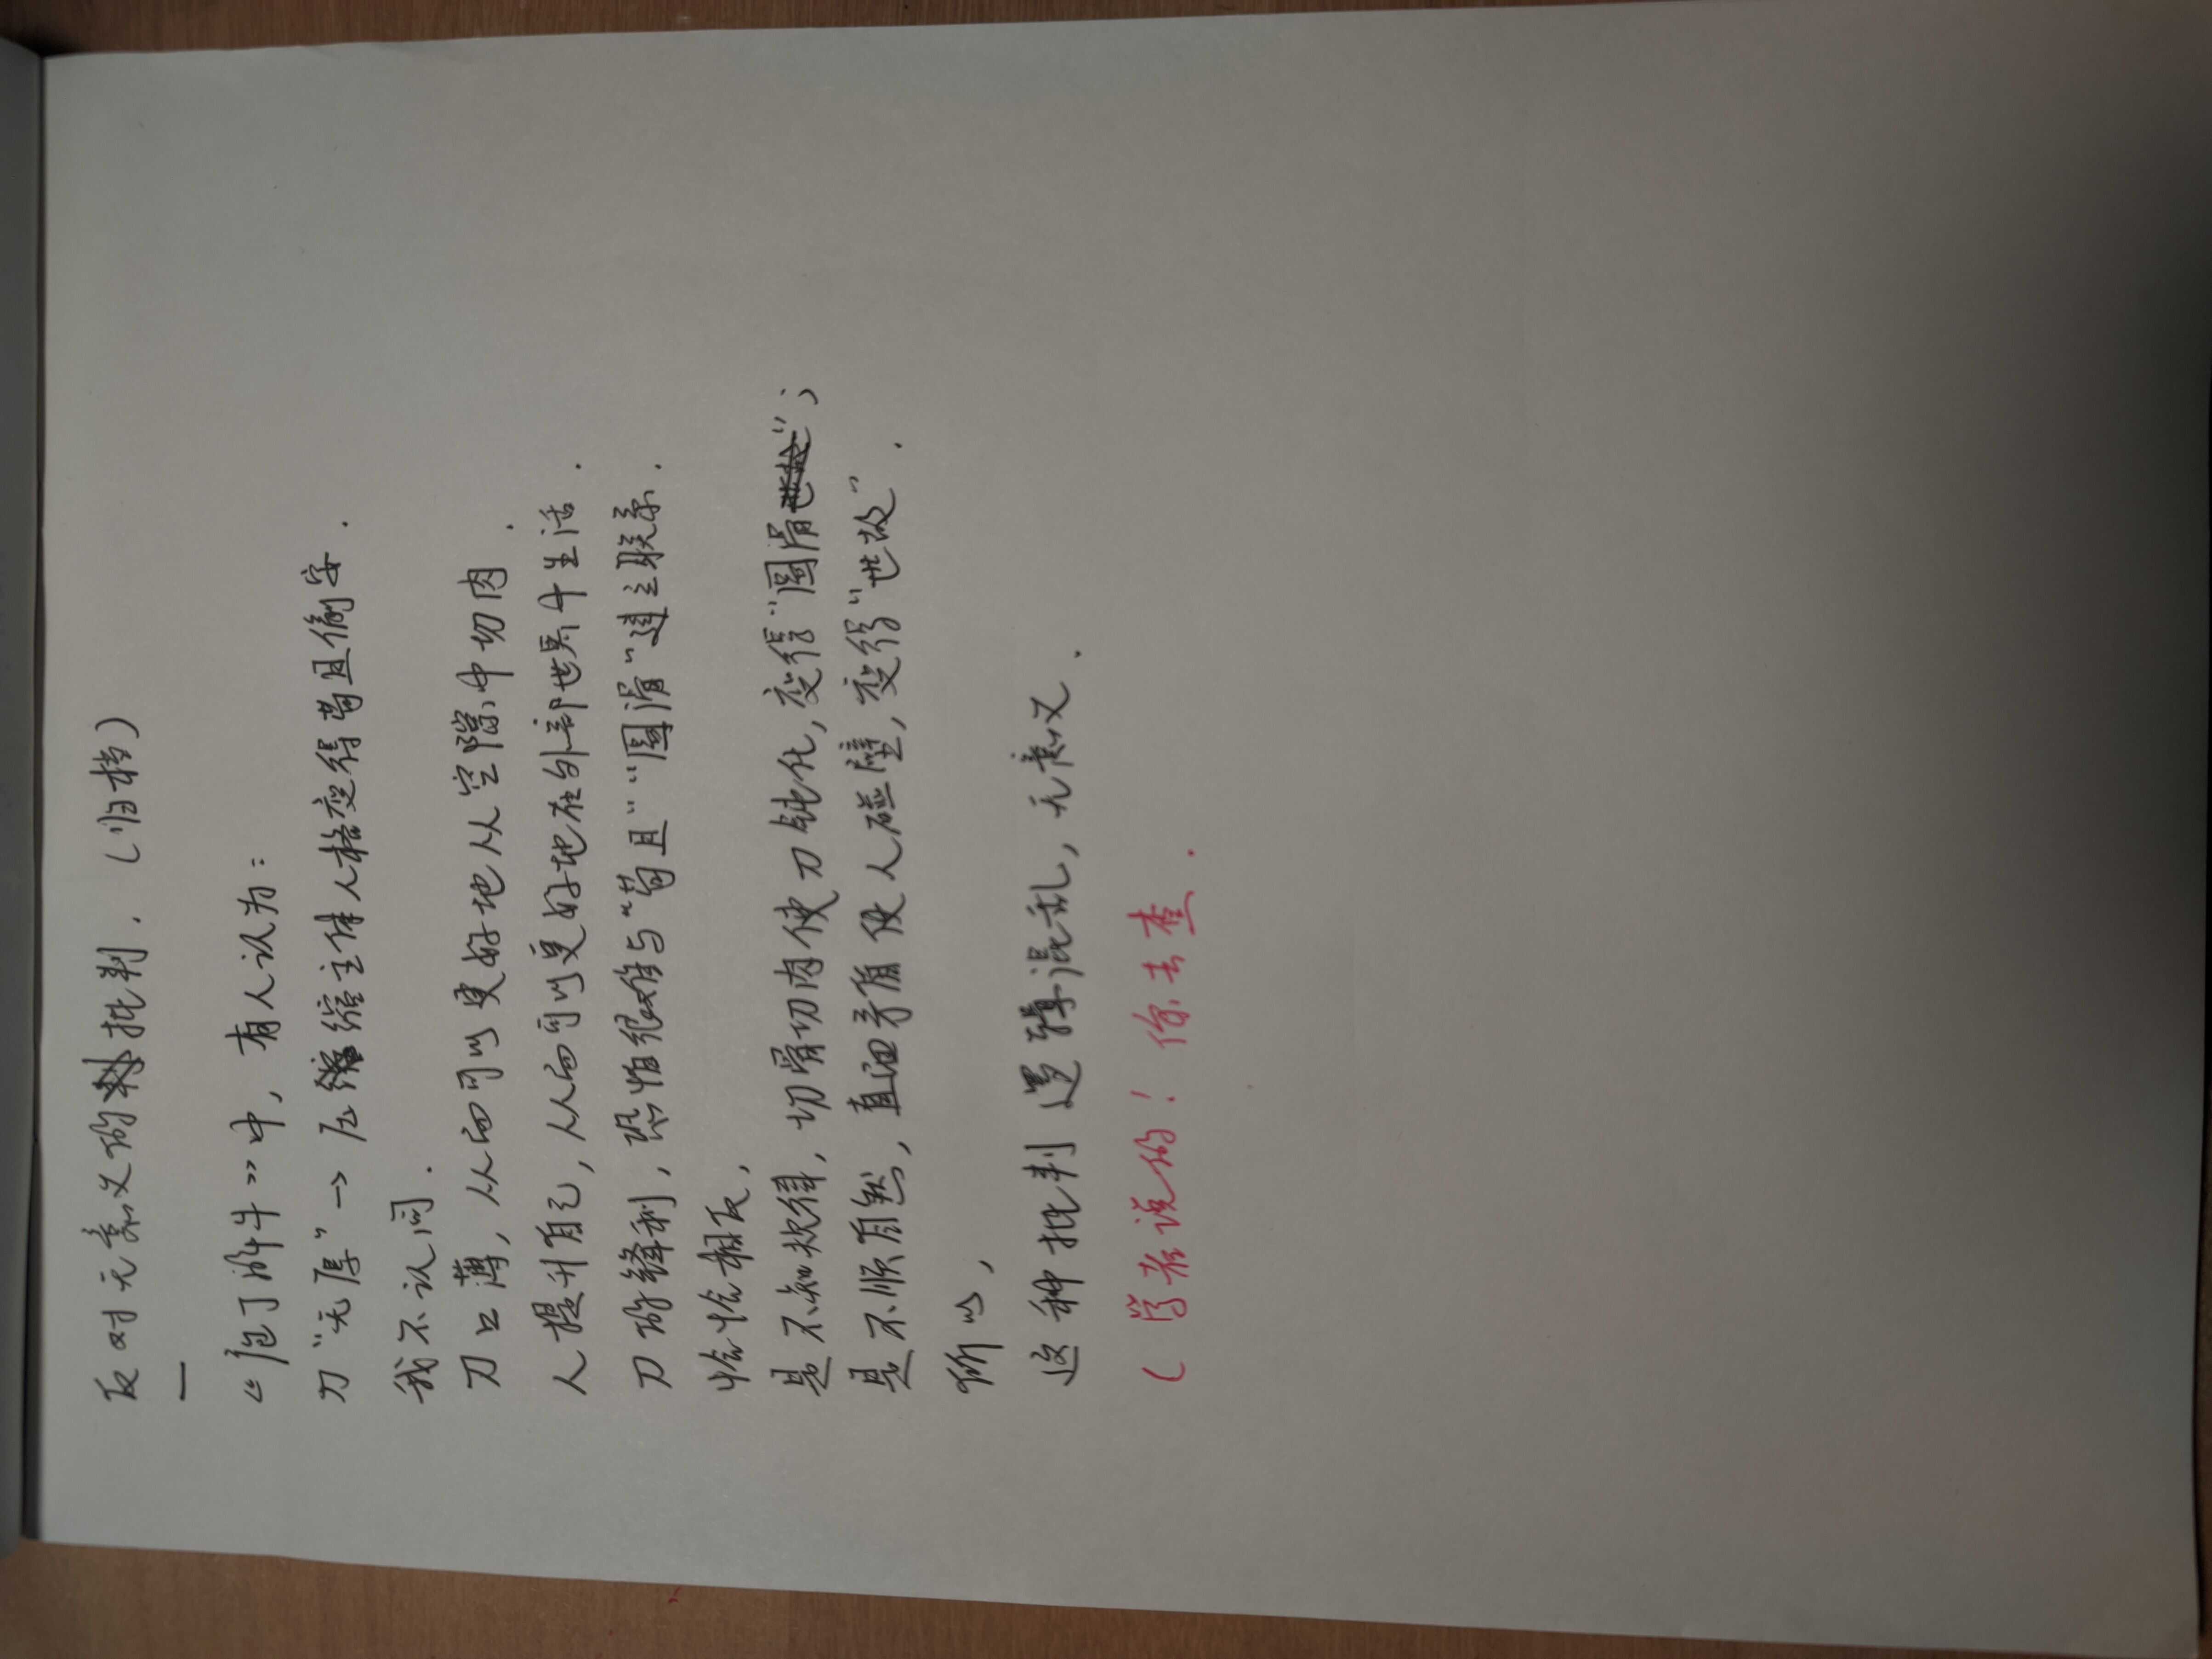 反对无意义的批判.（归档）
一
《庖丁解牛》中,有人认为:
刀“无厚”→压缩主体人格变得苟且偷安.
我不认同.
刀口薄,从而可以更好地从空隙中切肉.
人提升自己,从而可以更好地在外部世界中生活.
刀的锋利,恐怕很难与“苟且”“圆滑”建立联系.
恰恰相反,
是不知规律,切骨切肉使刀钝化,变得“圆滑世故”;
是不顺自然,直面矛盾使人碰壁,变得“世故”.
所以,
这种批判逻辑混乱,无意义.
（学者说的!你去查.